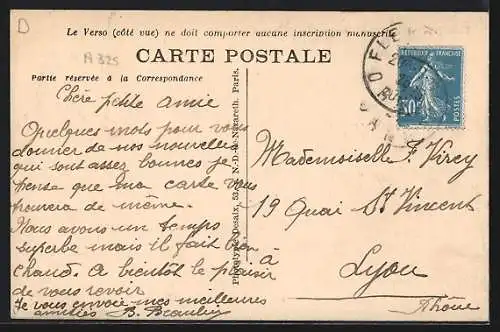 D
Le Verso (côté vue) ne doit comporter aucune inscription manuscrite
A 325
CARTE POSTALE
Partie réservée à la Correspondance
Chère petite amie
Quelques mots pour vous
donner de nos nouvelles
qui sont assez bonnes je
pense que ma carte vous
trouvera de même.
Nous avons un temps
superbe mais il fait bien
chaud. A bientôt le plaisir
de vous revoir
Je vous envoie nos meilleures
amitiés B. Beaulieu
Phototypie Desaix, N.-D.-de-Nazareth, Paris.
REPUBLIQUE FRANÇAISE
30c
POSTES
Mademoiselle J. Virey
19 Quai St Vincent
à
Lyon
Rhône